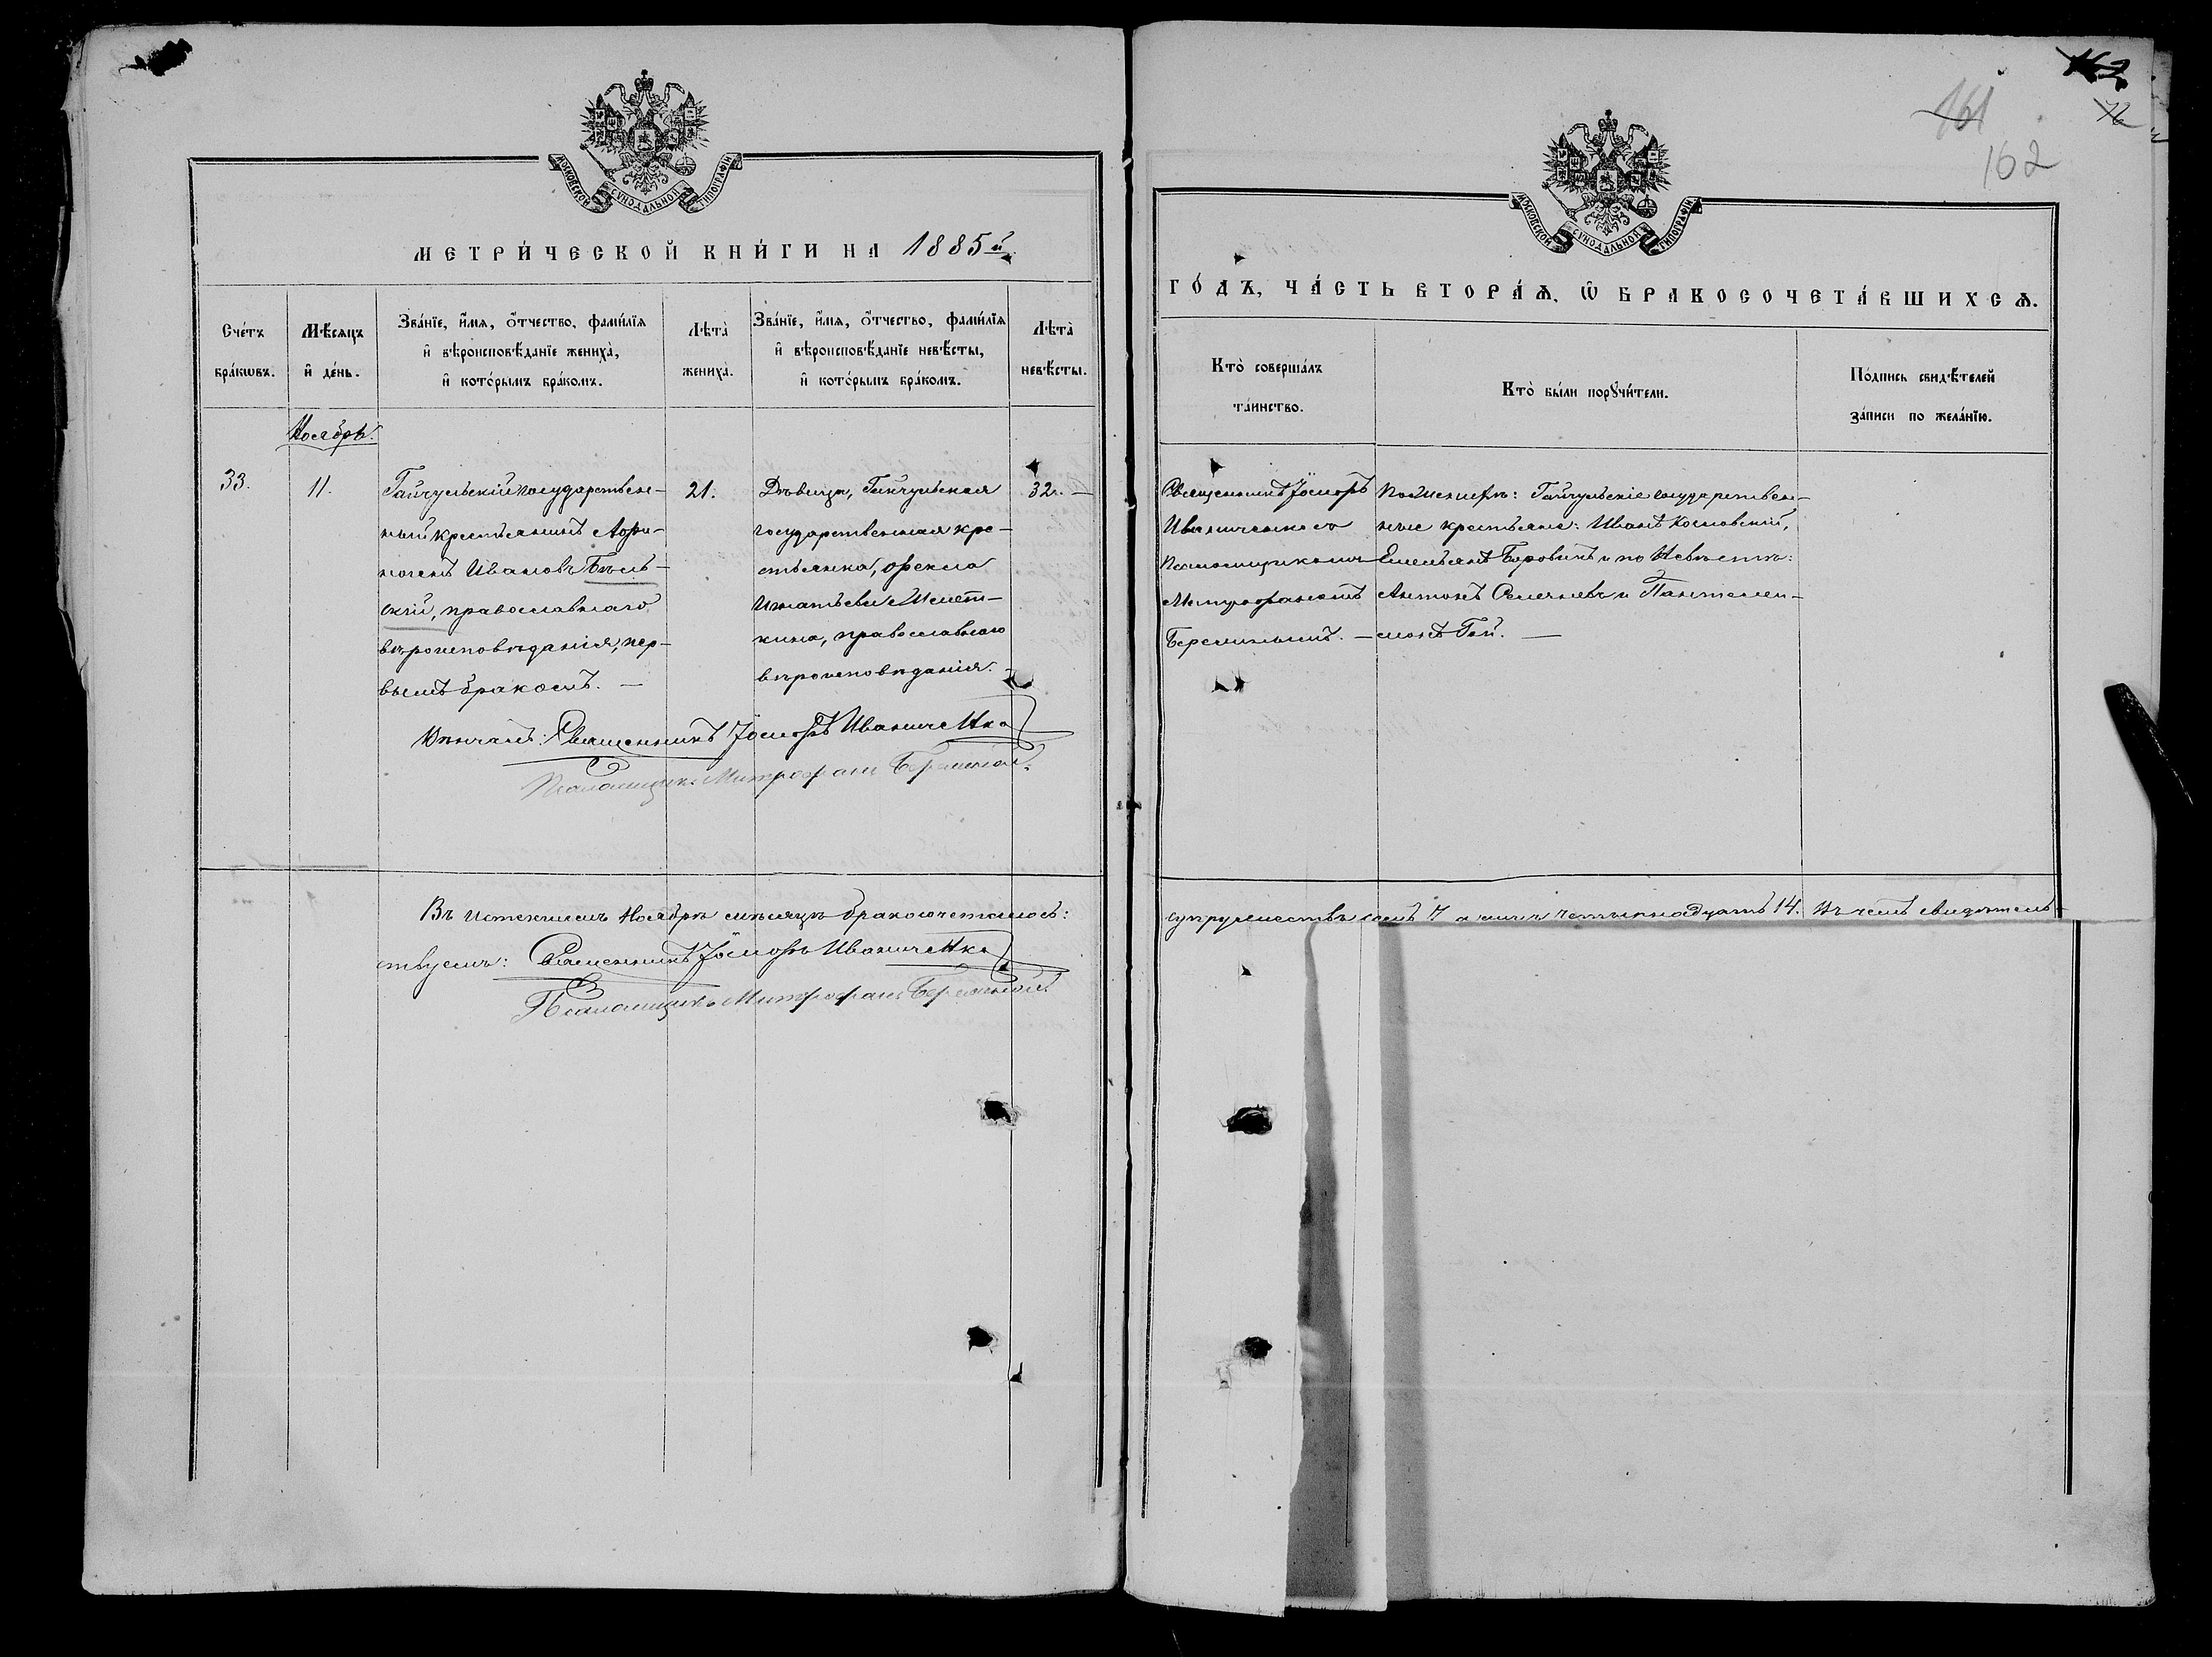 162
161
76
162
МОСКОВСКОЙ СѴНОДАЛЬНОЙ ТИПОГРАФІИ
МЕТРИ́ЧЕСКОЙ КНИ́ГИ НА 1885й
Сче́тъ бра́кѡвъ.
Мѣ́сяцъ и҆ де́нь.
Зва́нїе, и҆́мя, ѻ҆́тчество, фами́лїя и҆ вѣроисповѣ́данїе жениха̀, и҆ кото́рымъ бра́комъ.
Лѣ́та жениха̀.
Зва́нїе, и҆́мя, ѻ҆́тчество, фами́лїя и҆ вѣроисповѣ́данїе невѣ́сты, и҆ кото́рымъ бра́комъ.
Лѣ́та невѣ́сты.
Ноябрь.
33.
11.
Гайчульскій государствен-
ный крестьянинъ
Ивановъ Бѣль-
скій, православнаго
вѣроисповѣданія, пер-
вымъ бракомъ. —
21.
Дѣвица, Гайчульская
государственная кре-
стьянка, Фекла
Игнатьева
кина, православнаго
вѣроисповѣданія. —
32. —
Вѣнчалъ: Священникъ Іосифъ Иваниченко
Псаломщикъ Митрофанъ Беременой.
Въ истекшемъ Ноябрѣ мѣсяцѣ бракосочеталось:
ствуемъ: Священникъ Іосифъ Иваниченко
Псаломщикъ Митрофанъ Беременой.
МОСКОВСКОЙ СѴНОДАЛЬНОЙ ТИПОГРАФІИ
ГО́ДЪ, ЧА́СТЬ ВТОРА́Ѧ, Ѡ҆ БРАКОСОЧЕТА́ВШИХСѦ.
Кто̀ соверша́лъ та́инство.
Кто̀ бы́ли порꙋчи́тели.
По́дпись свидѣ́телей за́писи по жела́нїю.
Священникъ Іосифъ
Иваниченко съ
Псаломщикомъ
Митрофаномъ
Беременымъ. —
По Женихѣ: Гайчульскіе государствен-
ные крестьяне: Иванъ Косновскій,
Емельянъ Боровикъ и по Невѣстѣ:
Антонъ Семеневъ и Пантелей-
монъ Гой. —
супружествъ семь 7 а лицъ четырнадцать 14. Въ чемъ свидѣтель-